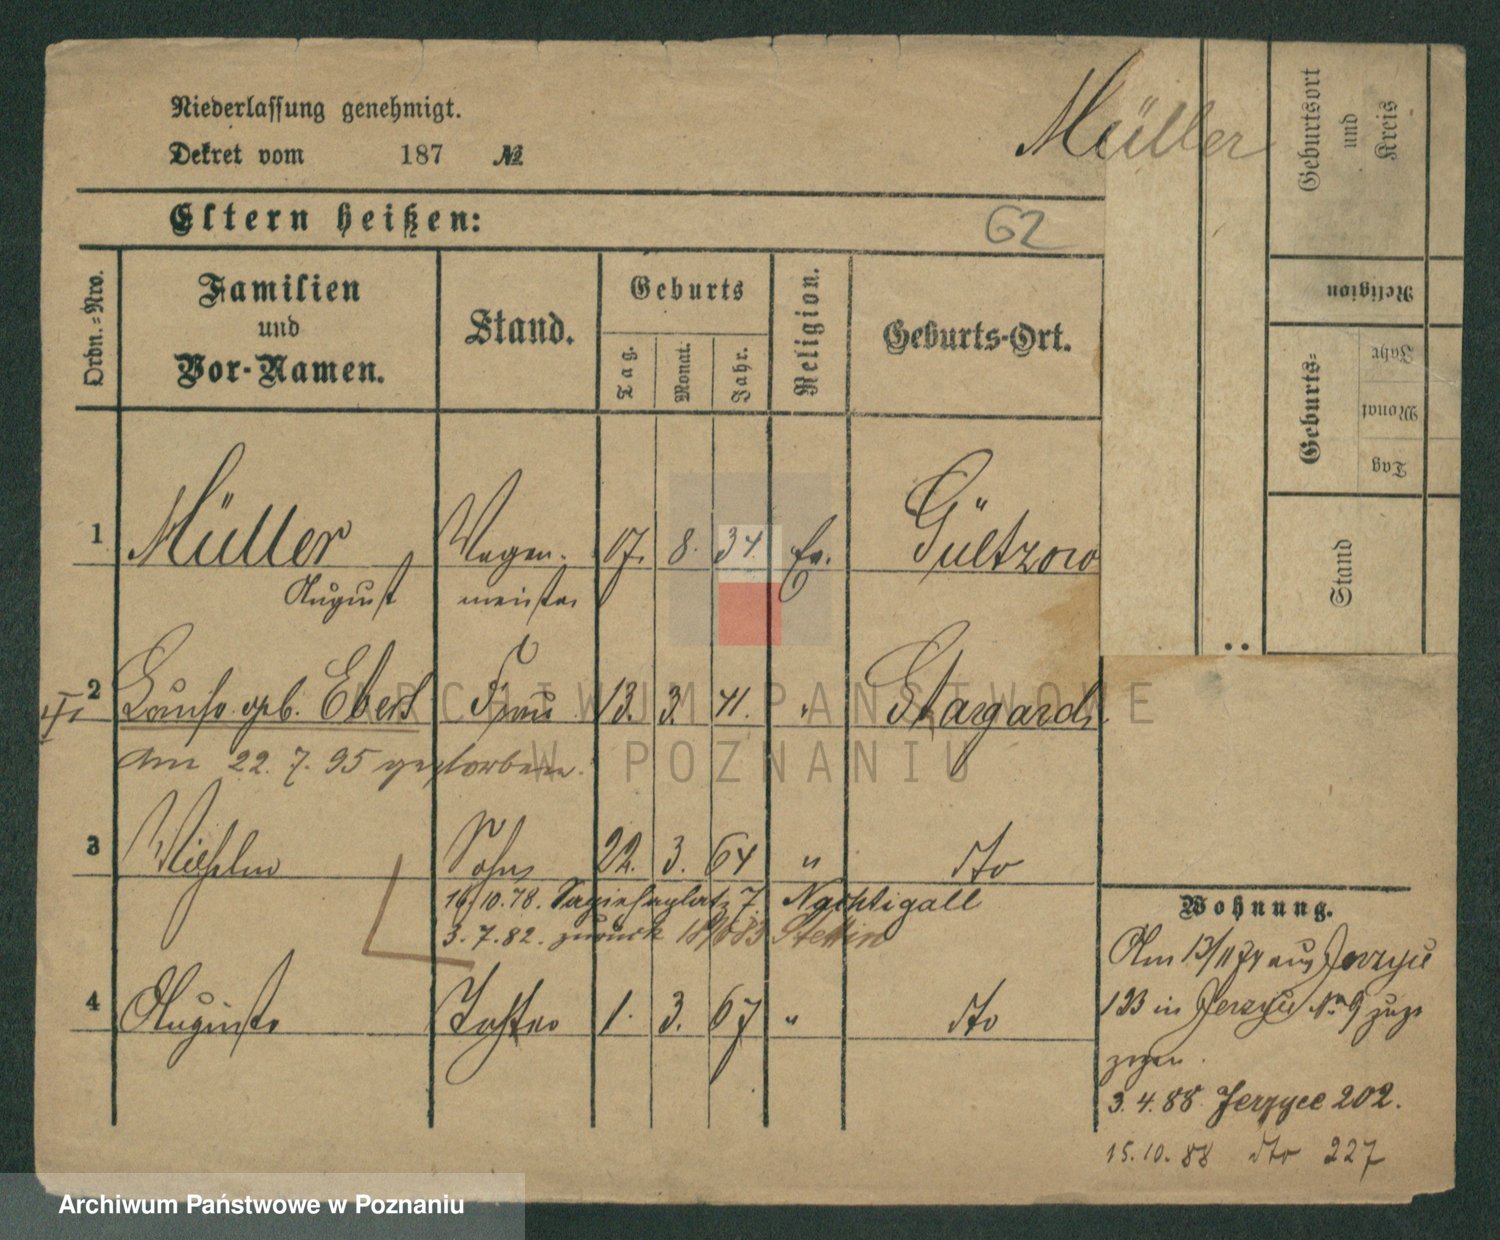 Niederlassung genehmigt.
Dekret vom 187 №
Müller
Eltern heißen:
62
Ordn.=Nro.
Familien
und
Vor-Namen.
Stand.
Geburts
Tag.
Monat.
Jahr.
Religion.
Geburts-Ort.
1 Müller Wagen- 17. 8. 34. Ev. Gültzow
August meister
2 Louise geb. Ebert Frau 13. 3. 41. " Stargard
Am 22. 7. 95 gestorben.
3 Wilhelm Sohn 22. 3. 64 " dto
16/10.78. Sapiehaplatz 7. Nachtigall
3. 7. 82. zurück Stettin
4 Auguste Tochter 1. 3. 67 " dto
Geburtsort
und
Kreis
Religion
Geburts-
Jahr
Monat
Tag
Stand
Wohnung.
Am 13/11 74 aus Jerzyce
123 in Jerzyce No 9 zuge
zogen.
3. 4. 88. Jerzyce 202.
15. 10. 88 dto 227
ARCHIWUM PAŃSTWOWE
W POZNANIU
Archiwum Państwowe w Poznaniu